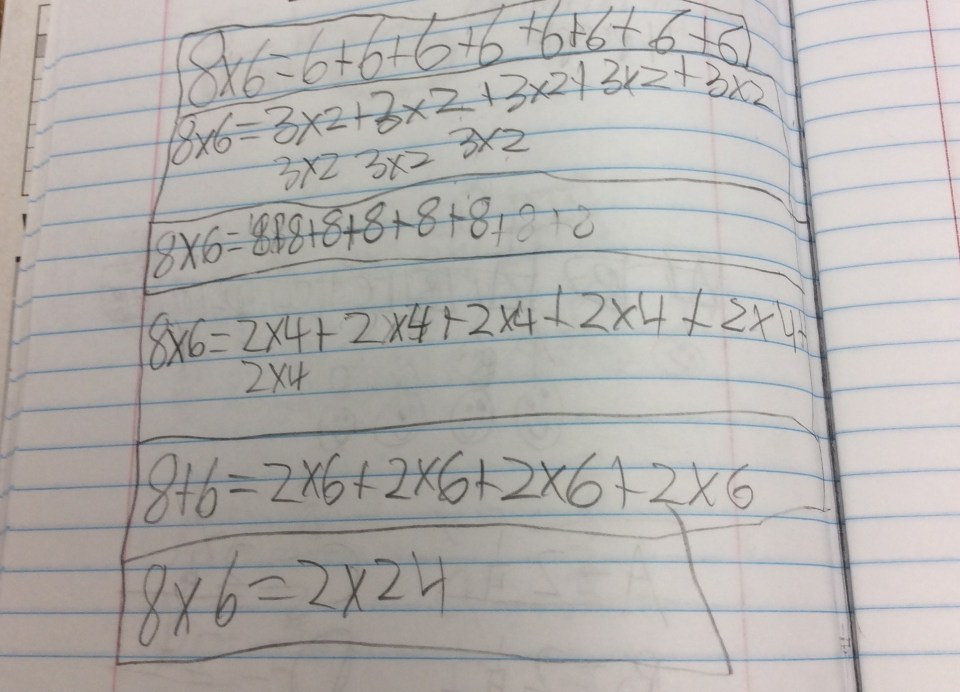 8x6=6+6+6+6+6+6+6+6
8x6=3x2+3x2+3x2+3x2+3x2
3x2 3x2 3x2
8x6=8+8+8+8+8+8+8+8
8x6=2x4+2x4+2x4+2x4+2x4+
2x4
8+6=2x6+2x6+2x6+2x6
8x6=2x24